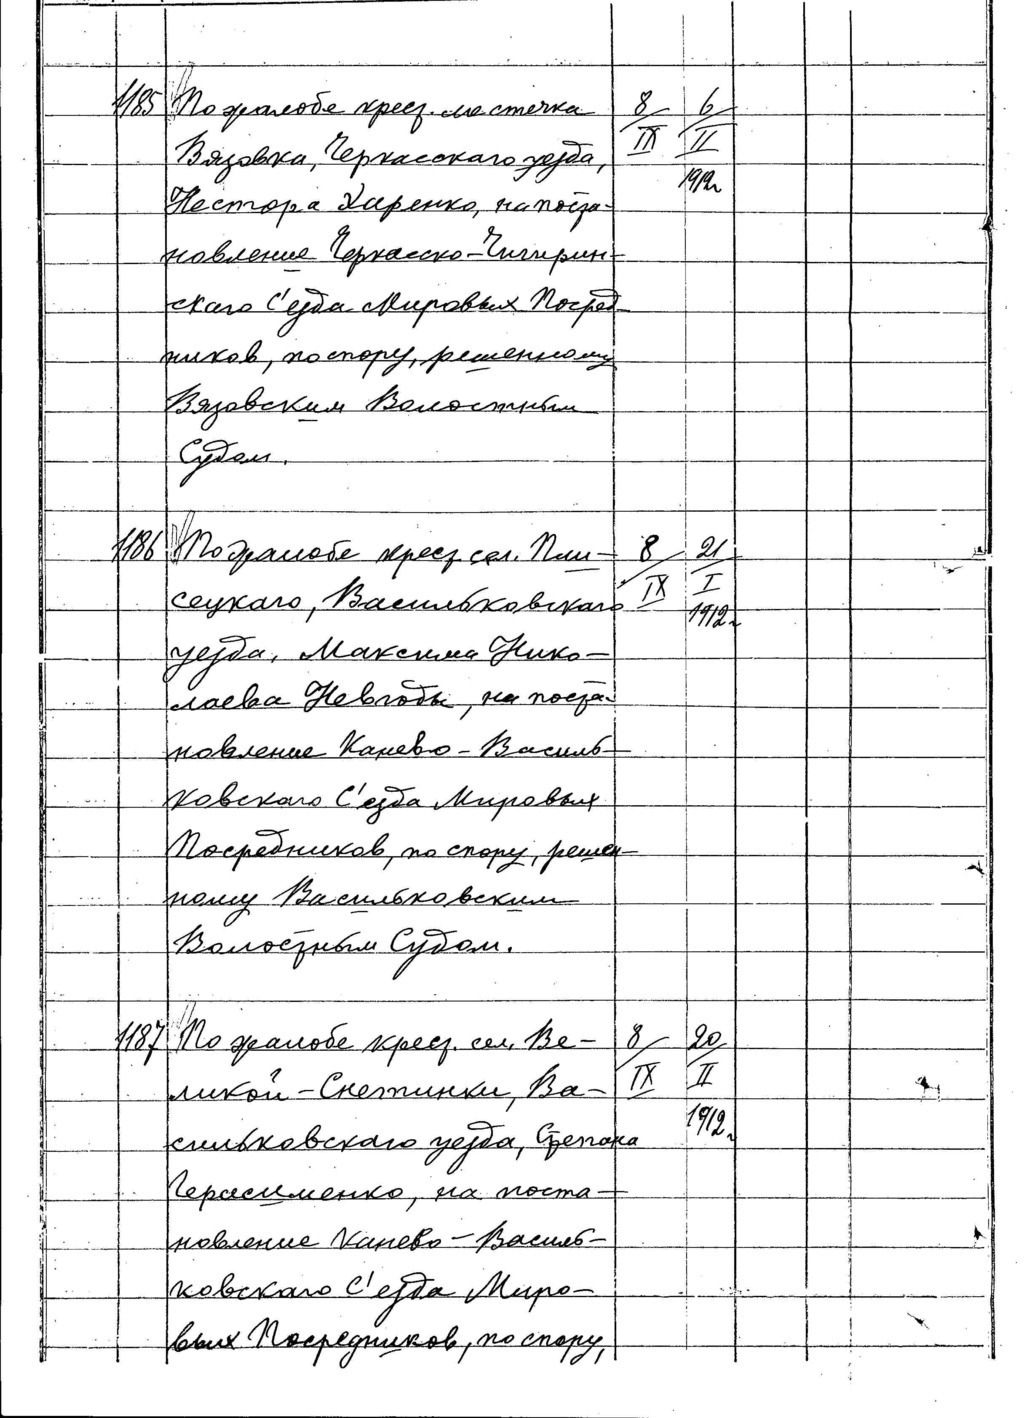 1185 По жалобе крест. местечка 8/IX 6/II 1912г.
Вязовка, Черкасскаго уезда,
Нестора Харенко, на поста-
новление Черкасско-Чигирин-
скаго С'езда Мировых Посред-
ников, по спору, решенному
Вязовским Волостным
Судом.
1186 По жалобе крест. сел. Пли- 8/IX 21/I 1912г.
сецкаго, Васильковскаго
уезда, Максима Нико-
лаева Невгоды, на поста-
новление Канево-Василь-
ковскаго С'езда Мировых
Посредников, по спору, решен-
ному Васильковским
Волостным Судом.
1187 По жалобе крест. сел. Ве- 8/IX 20/II 1912г.
ликой-Снетинки, Ва-
сильковскаго уезда, Степана
Герасименко, на поста-
новление Канево-Василь-
ковскаго С'езда Миро-
вых Посредников, по спору,